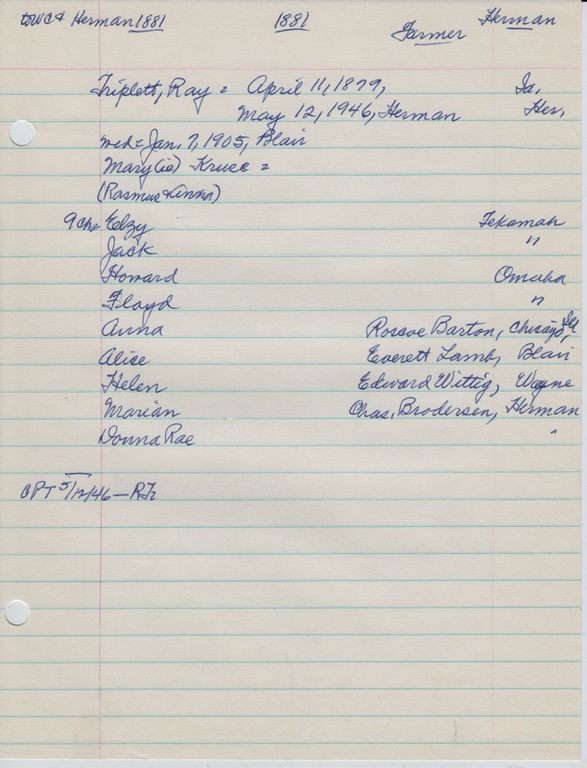 to WC & Herman 1881 1881 Farmer Herman
Triplett, Ray = April 11, 1879, Ia.
May 12, 1946, Herman Her.
wed = Jan. 7, 1905, Blair
Mary (ie) Kruse =
(Rasmus & Anna)
9 ch = Elzy Tekamah
Jack "
Howard Omaha
Floyd "
Anna Roscoe Barton, Chicago, Ill
Alice Everett Lamb, Blair
Helen Edward Wittig, Wayne
Marian Chas. Brodersen, Herman
Donna Rae "
5/12/46